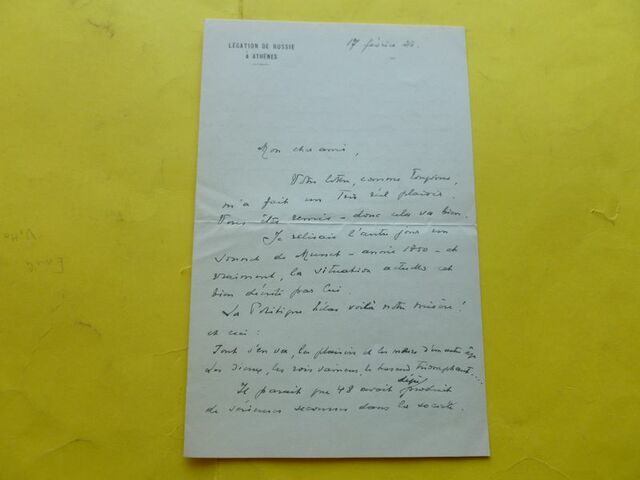 LÉGATION DE RUSSIE
à ATHÈNES
17 février
Mon cher ami,
Votre lettre, comme toujours,
m'a fait un très réel plaisir.
Vous êtes remis – donc cela va bien.
Je relisais l'autre jour un
sonnet de Musset – année 1850 – et
vraiment, la situation actuelle est
bien décrite par lui.
La Politique, hélas voilà notre misère!
et ceci:
Tout s'en va, les plaisirs et les mœurs d'un autre âge
Les dieux, les rois vaincus, le hasard triomphant....
Il paraît que 48 avait déjà produit
de sérieuses secousses dans la société.